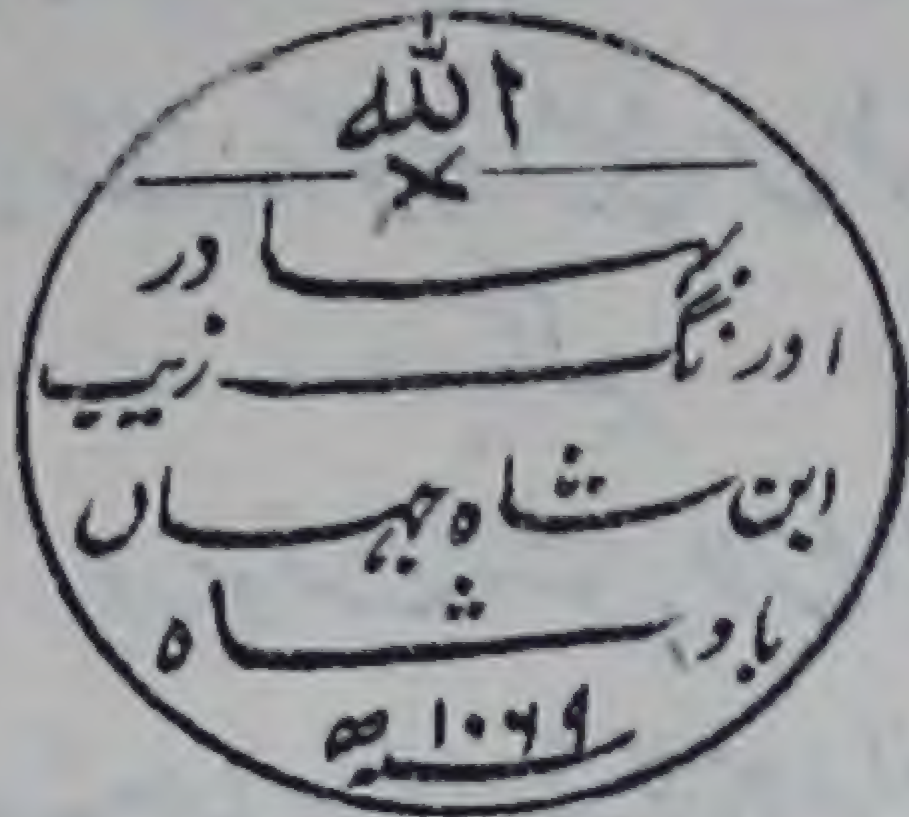 الله
بہادر
اورنگ زیب
ابن شاہ جہاں
بادشاہ
۱۰۶۹ ھ